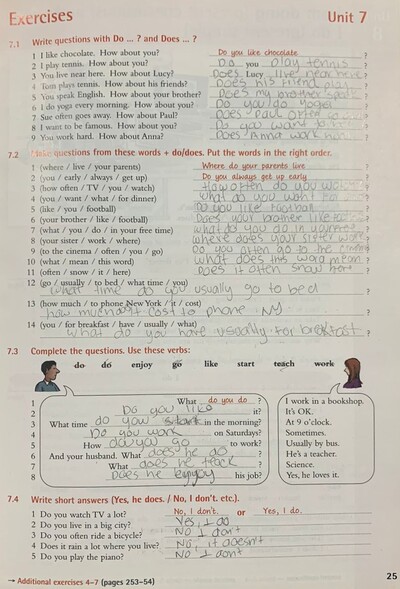 Exercises
Unit 7
7.1 Write questions with Do ... ? and Does ... ?
1 I like chocolate. How about you? Do you like chocolate ?
2 I play tennis. How about you? Do you play tennis ?
3 You live near here. How about Lucy? Does Lucy live near here ?
4 Tom plays tennis. How about his friends? Does his friend play ?
5 You speak English. How about your brother? Does my brother ?
6 I do yoga every morning. How about you? Do you do yoga ?
7 Sue often goes away. How about Paul? Does Paul often go ?
8 I want to be famous. How about you? Do you want to ?
9 You work hard. How about Anna? Does Anna work ?
7.2 Make questions from these words + do/does. Put the words in the right order.
1 (where / live / your parents) Where do your parents live ?
2 (you / early / always / get up) Do you always get up early ?
3 (how often / TV / you / watch) How often do you ?
4 (you / want / what / for dinner) What do you want for ?
5 (like / you / football) Do you like football ?
6 (your brother / like / football) Does your brother like ?
7 (what / you / do / in your free time) What do you do in ?
8 (your sister / work / where) Where does your sister work ?
9 (to the cinema / often / you / go) Do you often go to the cinema
10 (what / mean / this word) What does this word mean ?
11 (often / snow / it / here) Does it often snow ?
12 (go / usually / to bed / what time / you)
What time do you usually go to bed ?
13 (how much / to phone New York / it / cost)
how much cost to phone NY ?
14 (you / for breakfast / have / usually / what)
What do you have usually for breakfast ?
7.3 Complete the questions. Use these verbs:
do do enjoy go like start teach work
1 What do you do ? I work in a bookshop.
2 Do you like it? It's OK.
3 What time do you start in the morning? At 9 o'clock.
4 Do you work on Saturdays? Sometimes.
5 How do you go to work? Usually by bus.
6 And your husband. What does he do ? He's a teacher.
7 What does he teach ? Science.
8 Does he enjoy his job? Yes, he loves it.
7.4 Write short answers (Yes, he does. / No, I don't. etc.).
1 Do you watch TV a lot? No, I don't. or Yes, I do.
2 Do you live in a big city? Yes, I do
3 Do you often ride a bicycle? No I don't
4 Does it rain a lot where you live? No, it doesn't
5 Do you play the piano? No I don't
→ Additional exercises 4–7 (pages 253–54)
25